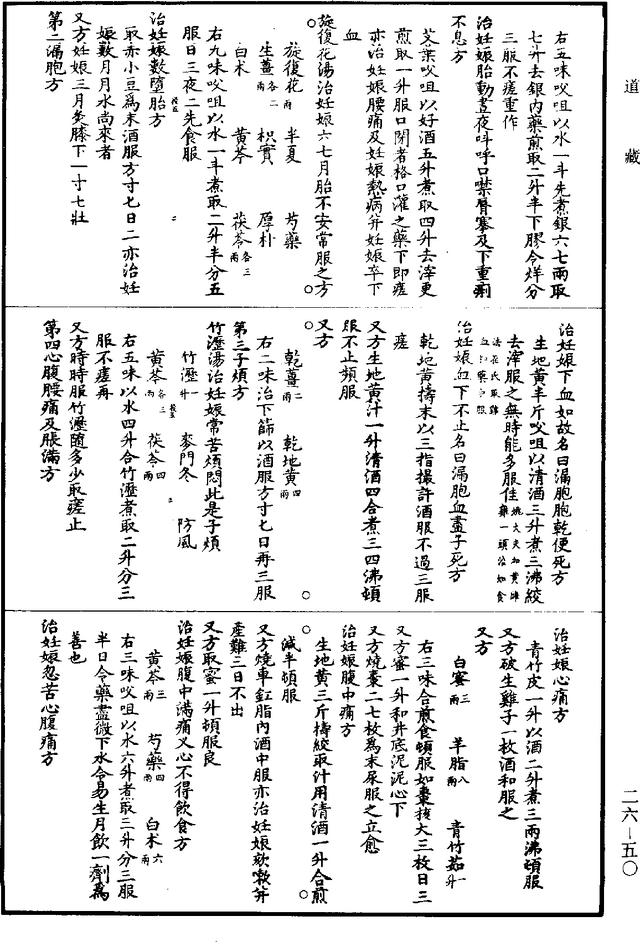 道藏
右五味㕮咀以水一斗先煮銀六七兩取
七升去銀內藥煎取二升半下膠令烊分
三服不瘥重作
治妊娠胎動晝夜叫呼口噤脣寒及下重痢
不息方
艾葉㕮咀以好酒五升煮取四升去滓更
煎取一升服口閉者格口灌之藥下即瘥
亦治妊娠腰痛及妊娠熱病并妊娠卒下
血
旋復花湯治妊娠六七月胎不安常服之方
旋復花一兩 半夏 芍藥
生薑各二兩 枳實 厚朴
白朮 黃芩 茯苓各三兩
右九味㕮咀以水一斗煮取二升半分五
服日三夜二先食服
治妊娠數墮胎方
取赤小豆為末酒服方寸七日二亦治妊
娠數月月水尚來者
又方妊娠三月灸膝下一寸七壯
第二漏胞方
治妊娠下血如故名曰漏胞胞乾便死方
生地黃半斤㕮咀以清酒三升煮三沸絞
去滓服之無時能多服佳姚大夫加黃雌雞一頭治如食
法崔氏取雞血和藥中服
治妊娠血下不止名曰漏胞血盡子死方
乾地黃擣末以三指撮許酒服不過三服
瘥
又方生地黃汁一升清酒四合煮三四沸頓
服不止頻服
又方
乾薑二兩 乾地黃四兩
右二味治下篩以酒服方寸七日再三服
第三子煩方
竹瀝湯治妊娠常苦煩悶此是子煩
竹瀝一升 麥門冬 防風
黃芩各三兩 茯苓四兩
右五味以水四升合竹瀝煮取二升分三
服不瘥再
又方時時服竹瀝隨多少取瘥止
第四心腹腰痛及脹滿方
治妊娠心痛方
青竹皮一升以酒二升煮三兩沸頓服
又方破生雞子一枚酒和服之
又方
白蜜三兩 羊脂八兩 青竹茹一升
右三味合煎食頓服如棗核大三枚日三
又方蜜一升和井底泥泥心下
又方燒棗二七枚為末尿服之立愈
治妊娠腹中痛方
生地黃三斤擣絞取汁用清酒一升合煎
減半頓服
又方燒車釭脂內酒中服亦治妊娠欬嗽并
產難三日不出
又方取蜜一升頓服良
治妊娠腹中滿痛叉心不得飲食方
黃芩三兩 芍藥四兩 白朮六兩
右三味㕮咀以水六升煮取三升分三服
半日令藥盡微下水令易生月飲一劑為
善也
治妊娠忽苦心腹痛方
二六—五〇